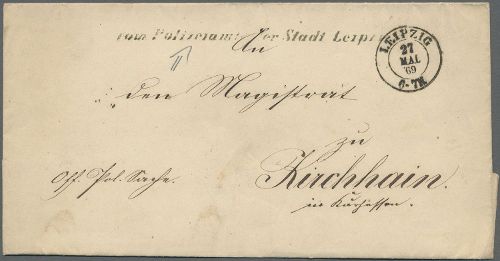 vom Polizeiamt der Stadt Leipz
LEIPZIG
27
MAI
69
6-7N
An
den Magistrat
zu
Kirchhain.
in Kurhessen.
Off. Pol. Sache.